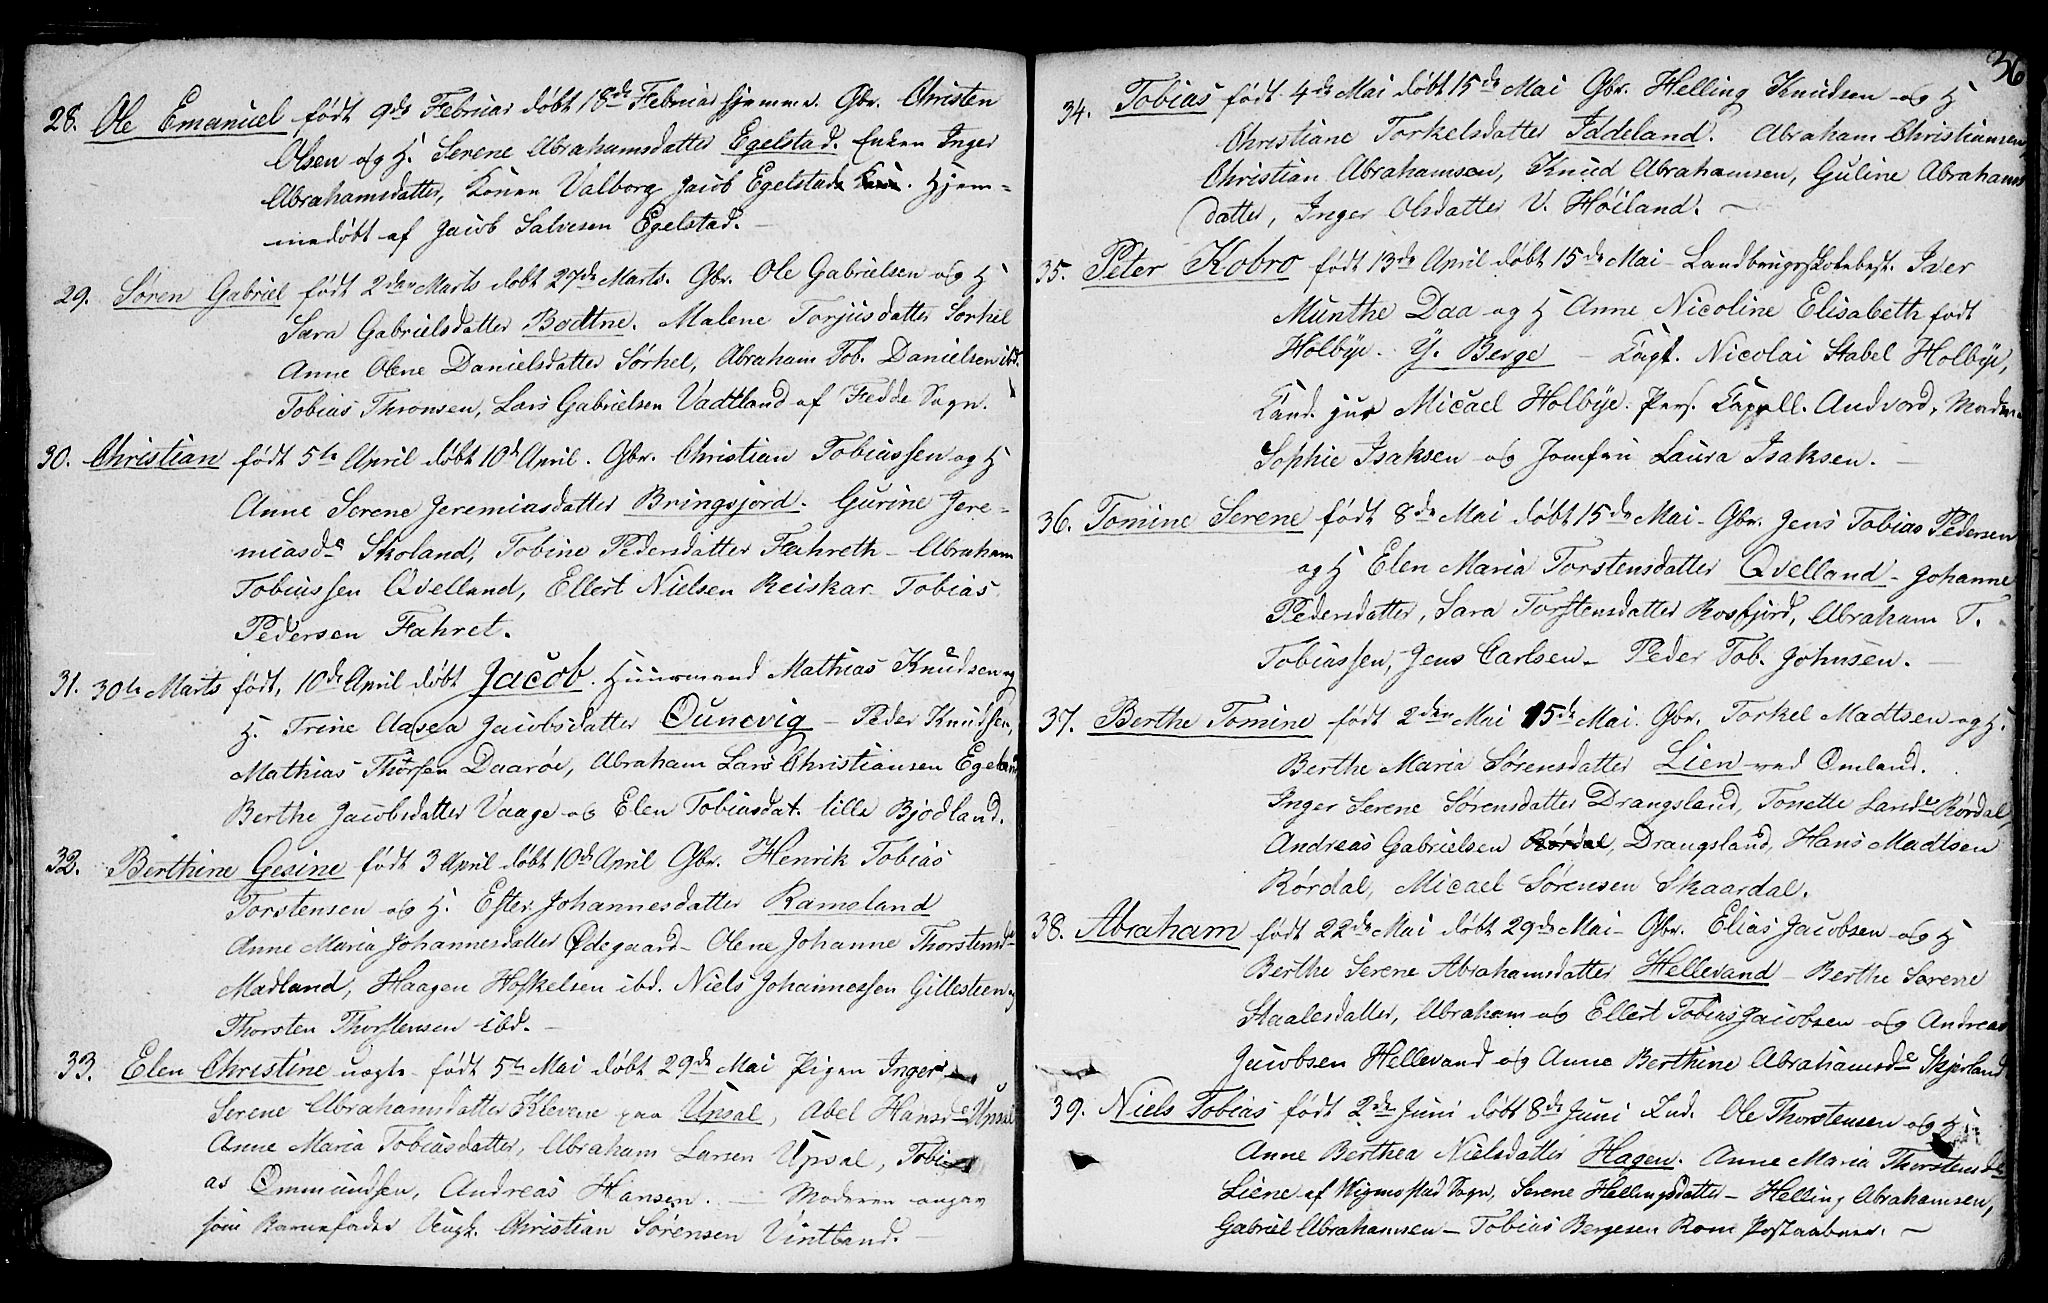 28. Ole Emanuel født 9de Februar døbt 18de Februar hjemme. Gbr. Christen
Olsen og H. Serene Abrahamsdatter Egelstad. Enken Inger
Abrahamsdatter, Konen Valborg Jacob Egelstads Kone. Hjem-
medøbt af Jacob Salvesen Egelstad.
29. Søren Gabriel født 2den Marts døbt 27de Marts. Gbr. Ole Gabrielsen og H
Sara Gabrielsdatter Bødtne. Malene Torjusdatter Sørhel
Anne Olene Danielsdatter Sørhel, Abraham Tob. Danielsen ibd.
Tobias Thronsen, Lars Gabrielsen Vadtland af Fedde Sogn.
30. Christian født 5te April døbt 10d April. Gbr. Christian Tobiassen og H
Anne Serene Jeremiasdatter Bringsjord. Gurine Jere-
miasde Skoland, Tobine Pedersdatter Fahreth - Abraham
Tobiassen Qvelland, Ellert Nielsen Reiskar Tobias
Pedersen Fahret.
31. 30te Marts født, 10de April døbt Jacob. Huusmand Mathias Knudsen og
H. Trine Aasea Jacobsdatter Ounevig - Peder Knudsen,
Mathias Thorsen Daarøe, Abraham Lars Christiansen Egeland
Berthe Jacobsdatter Vaage og Elen Tobiasdat. lille Bjodland.
32. Berthine Gesine født 3 April døbt 10de April Gbr. Henrik Tobias
Torstensen og H. Ester Johannesdatter Rameland
Anne Maria Johannesdatter Ødegaard - Olene Johanne Thorstensde
Madland, Haagen Hoskelsen ibd. Niels Johannessen Gillesteen og
Thorsten Thorstensen ibd. -
33. Elen Christine uægte født 5te Mai døbt 29de Mai Pigen Inger
Serene Abrahamsdatter Klevene paa Upsal, Abel Hansde Upsal
Anne Maria Tobiasdatter, Abraham Larsen Upsal, Tobi
as Ommundsen, Andreas Hansen. - Moderen angav
som Barnefader Ungk. Christian Sørensen Vintland. -
36
34. Tobias født 4de Mai døbt 15de Mai Gbr. Helling Knudsen og H
Christiane Torkelsdatter Iddeland. Abraham Christiansen,
Christian Abrahamsen, Knud Abrahamsen, Guline Abrahams
datter, Inger Olsdatter V. Høiland. -
35. Peter Kobro født 13de April døbt 15de Mai - Landbrugsskolebest. Iver
Munthe Daa og H Anne Nicoline Elisabeth født
Holbye. Y. Berge - Capt. Nicolai Stabel Holbye,
Cand. jur Micael Holbye. Pers. Capell. Andvord, Madam
Sophie Isaksen og Jomfru Laura Isaksen. -
36. Tomine Serene født 8de Mai døbt 15de Mai - Gbr. Jens Tobias Pedersen
og H Elen Maria Torstensdatter Qvelland - Johanne
Pedersdatter, Sara Torstensdatter Rosfjord, Abraham T.
Tobiassen, Jens Carlsen - Peder Tob. Johnsen. -
37. Berthe Tomine født 2den Mai 15de Mai. Gbr. Torkel Madtsen og H.
Berthe Maria Sørensdatter Lien ved Omland.
Inger Serene Sørensdatter Drangsland, Tonette Larsde Rørdal,
Andreas Gabrielsen Rørdal, Drangsland, Hans Madtsen
Rørdal, Micael Sørensen Skaardal.
38. Abraham født 22de Mai døbt 29de Mai - Gbr. Elias Jacobsen og H
Berthe Serene Abrahamsdatter Hellevand - Berthe Serene
Staalesdatter, Abraham og Ellert Tobias Jacobsen og Andreas
Jacobsen Hellevand og Anne Berthine Abrahamsde Skjerland
39. Niels Tobias født 2de Juni døbt 8de Juni Ind. Ole Thorstensen og H
Anne Berthea Nielsdatter Hagen. Anne Maria Thorstensde
Liene af Wigmostad Sogn, Serene Hellingsdatter - Helling Abrahamsen,
Gabriel Abrahamsen - Tobias Bergesen Rom Postaabner. -